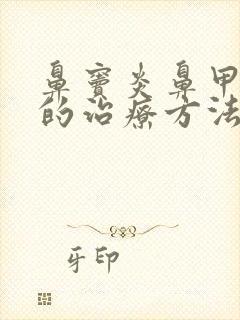 鼻窦炎鼻甲
的治疗方法
牙印